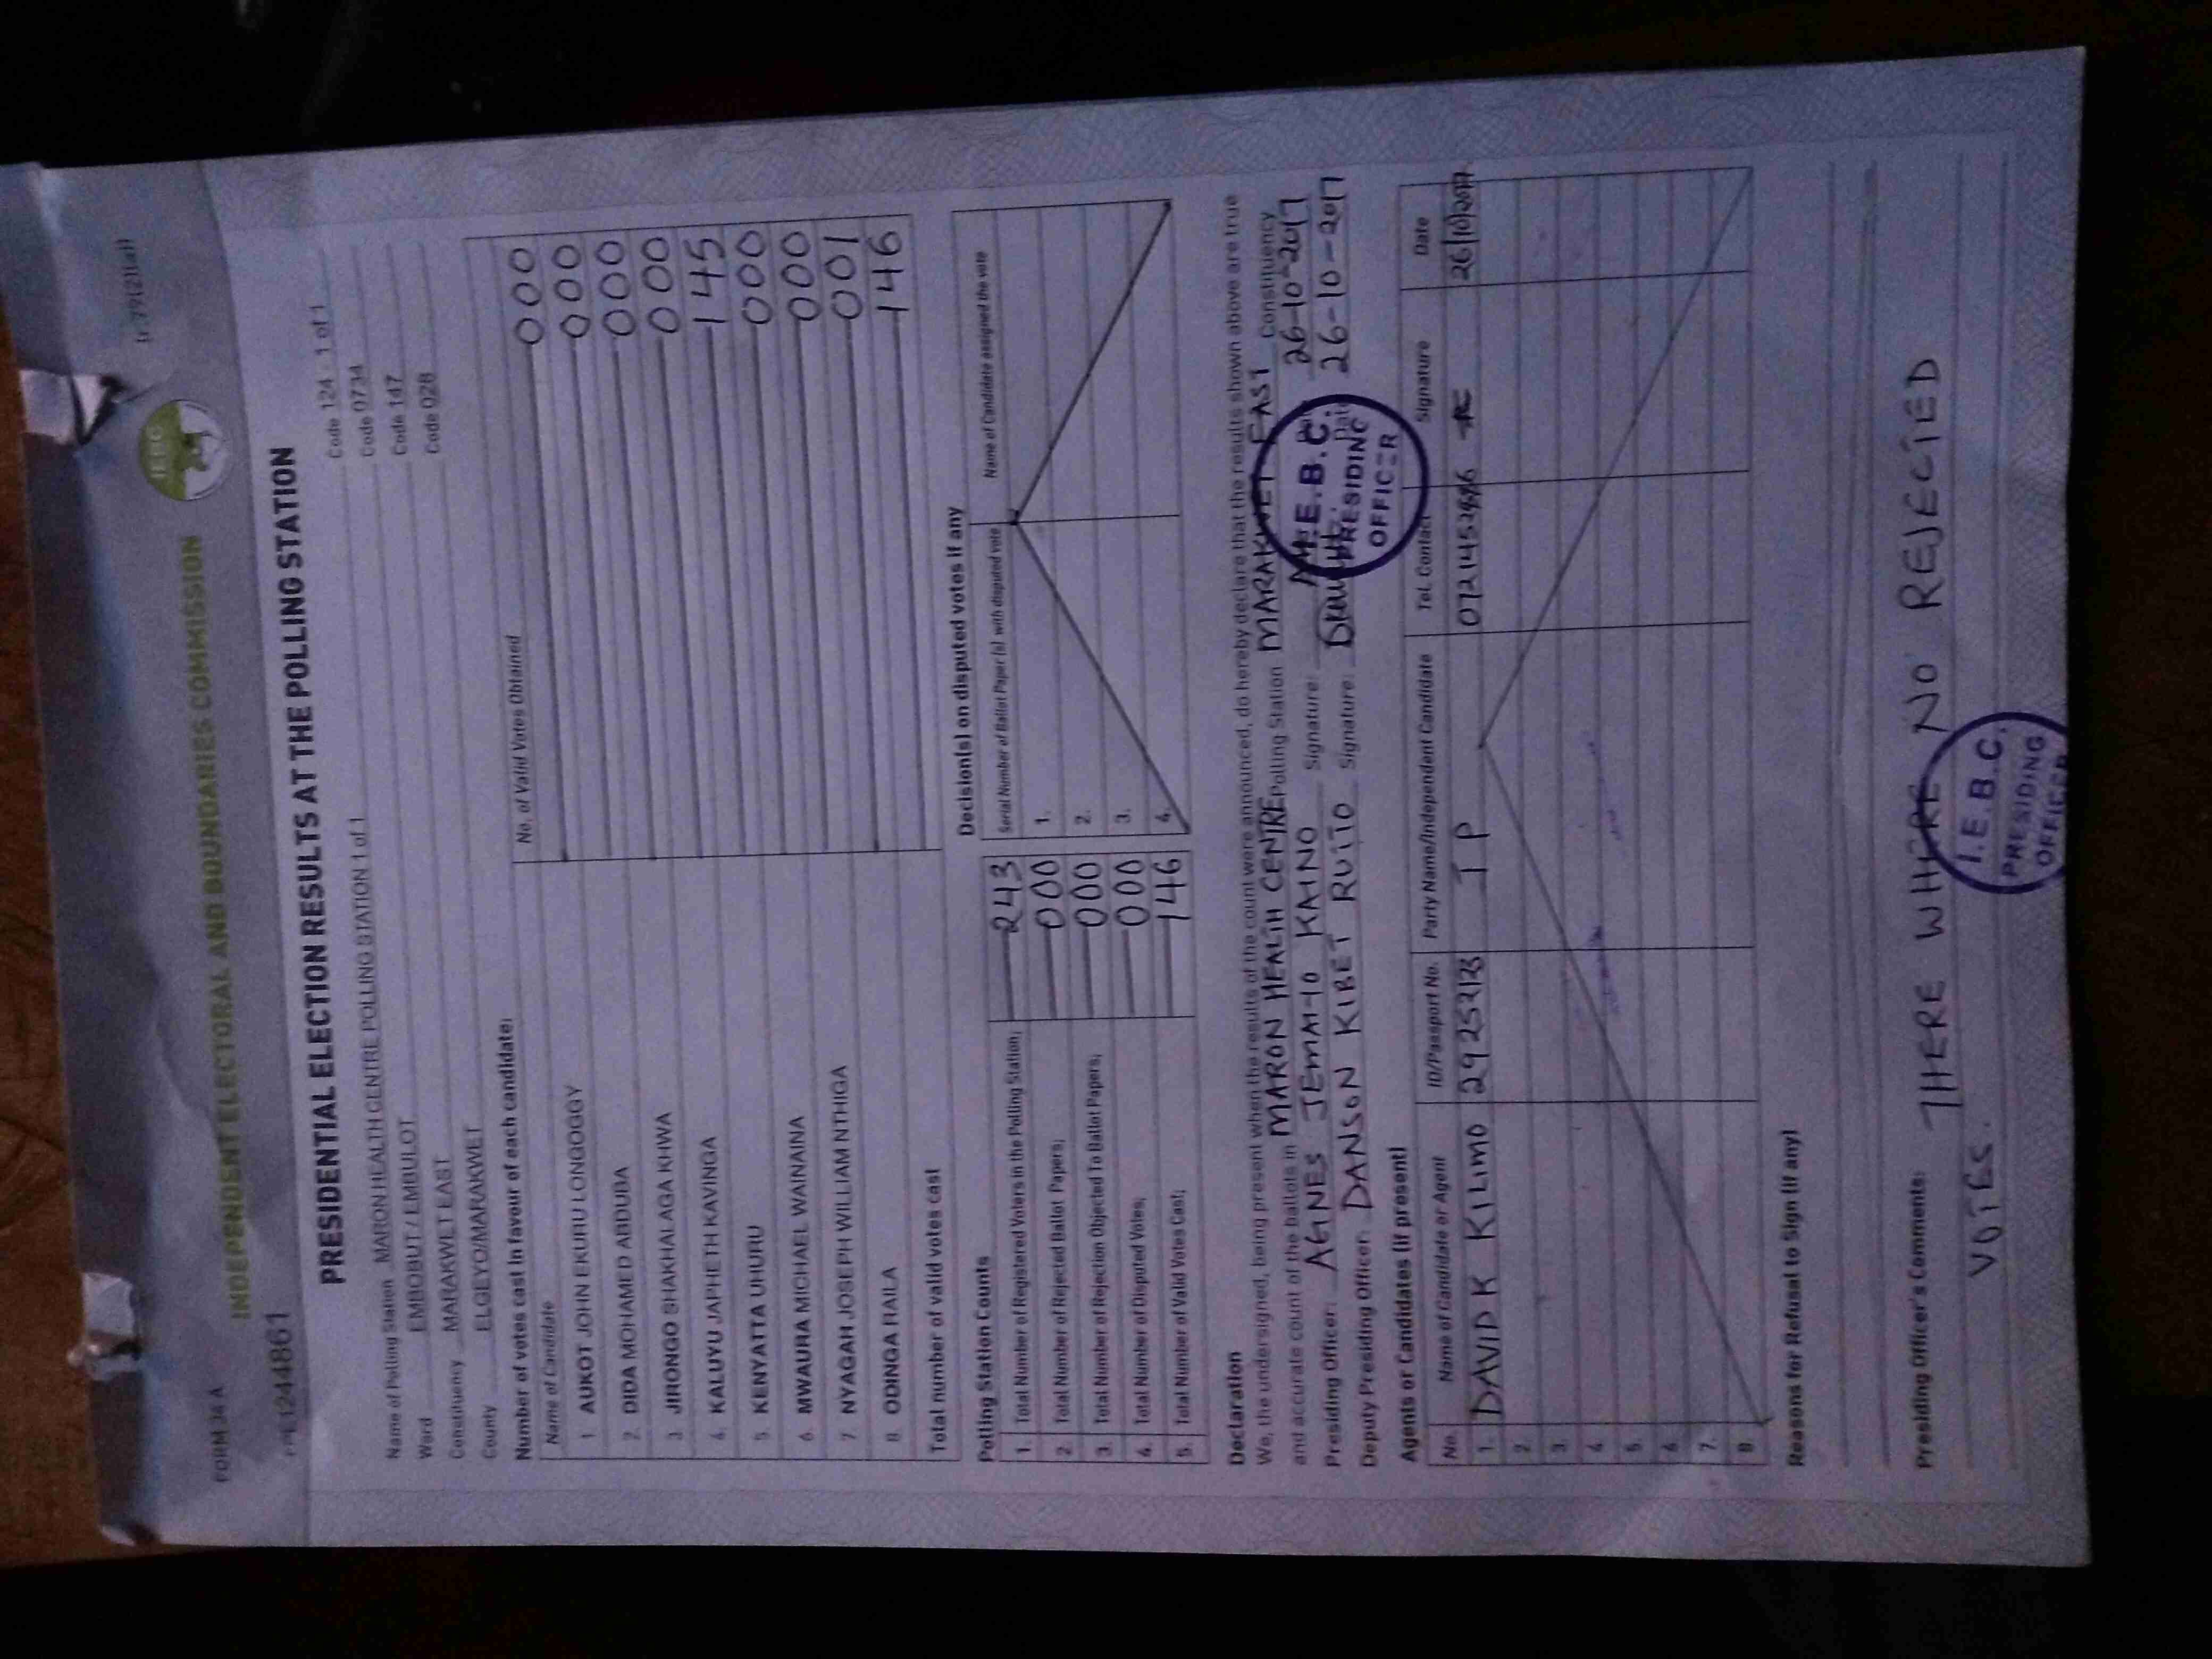 FORM 34 A
INDEPENDENT ELECTORAL AND BOUNDARIES COMMISSION
IEBC
PRESIDENTIAL ELECTION RESULTS AT THE POLLING STATION
Name of Polling Station MARON HEALTH CENTRE POLLING STATION 1 of 1 Code 124 - 1 of 1
Ward EMBOBUT / EMBULOT Code 0734
Constituency MARAKWET EAST Code 147
County ELGEYO/MARAKWET Code 028
Number of votes cast in favour of each candidate:
Name of Candidate No. of Valid Votes Obtained
1 AUKOT JOHN EKURU LONGOGGY 000
2. DIDA MOHAMED ABDUBA 000
3 JIRONGO SHAKHALAGA KHWA 000
4. KALUYU JAPHETH KAVINGA 000
5 KENYATTA UHURU 145
6. MWAURA MICHAEL WAINAINA 000
7. NYAGAH JOSEPH WILLIAM NTHIGA 000
8 ODINGA RAILA 001
Total number of valid votes cast 146
Polling Station Counts
1. Total Number of Registered Voters in the Polling Station; 243
2. Total Number of Rejected Ballot Papers; 000
3. Total Number of Rejection Objected To Ballot Papers; 000
4. Total Number of Disputed Votes; 000
5. Total Number of Valid Votes Cast; 146
Decision(s) on disputed votes if any
Serial Number of Ballot Paper (s) with disputed vote Name of Candidate assigned the vote
1.
2.
3.
4.
Declaration
We, the undersigned, being present when the results of the count were announced, do hereby declare that the results shown above are true
and accurate count of the ballots in MARON HEALTH CENTRE Polling Station MARAKWET EAST Constituency
Presiding Officer: AGNES JEMAIYO KAINO Signature: 26-10-2017
Deputy Presiding Officer: DANSON KIBET RUTO Signature: Date 26-10-2017
I.E.B.C.
PRESIDING
OFFICER
Agents or Candidates (if present)
No. Name of Candidate or Agent ID/Passport No. Party Name/Independent Candidate Tel. Contact Signature Date
1. DAVID K KILIMO 29252123 JP 26/10/2017
2.
3.
4.
5.
6.
7.
8
Reasons for Refusal to Sign (if any)
Presiding Officer's Comments: THERE WHERE NO REJECTED
VOTES.
I.E.B.C.
PRESIDING
OFFICER